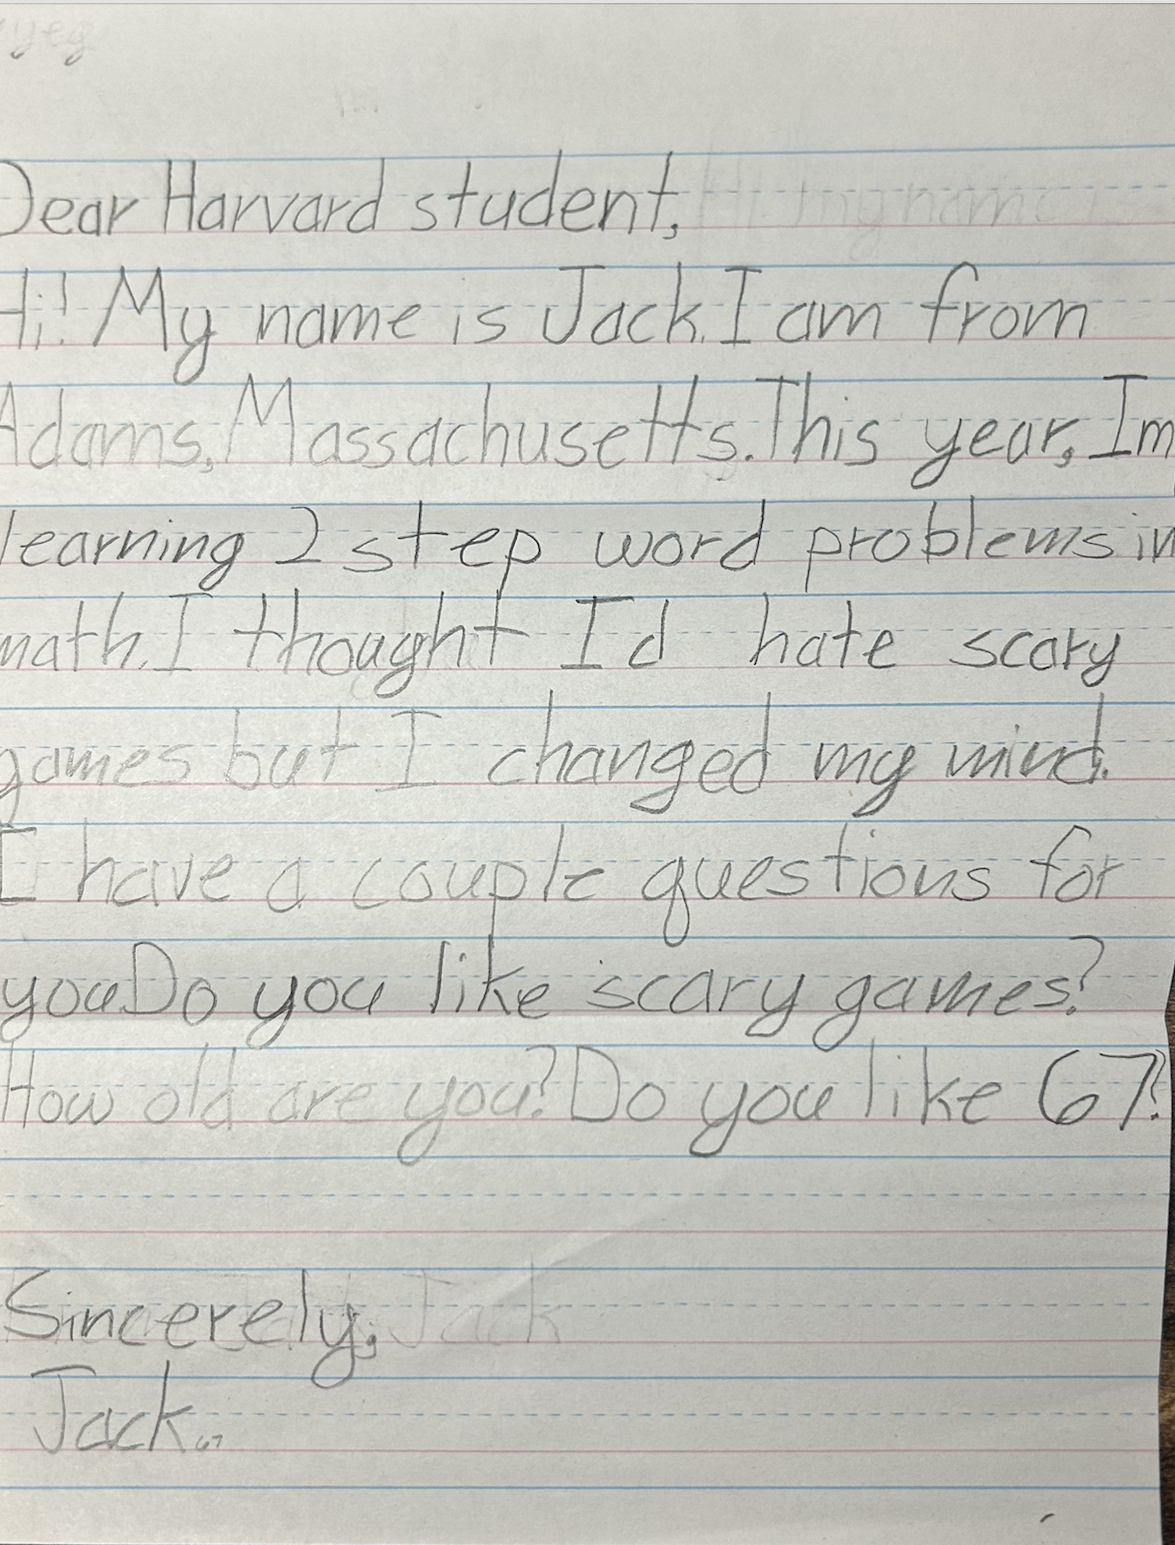 Dear Harvard student,
Hi! My name is Jack. I am from
Adams, Massachusetts. This year, Im
learning 2 step word problems in
math. I thought Id hate scary
games but I changed my mind.
I have a couple questions for
you. Do you like scary games?
How old are you? Do you like 67?
Sincerely, Jack
Jack. 67